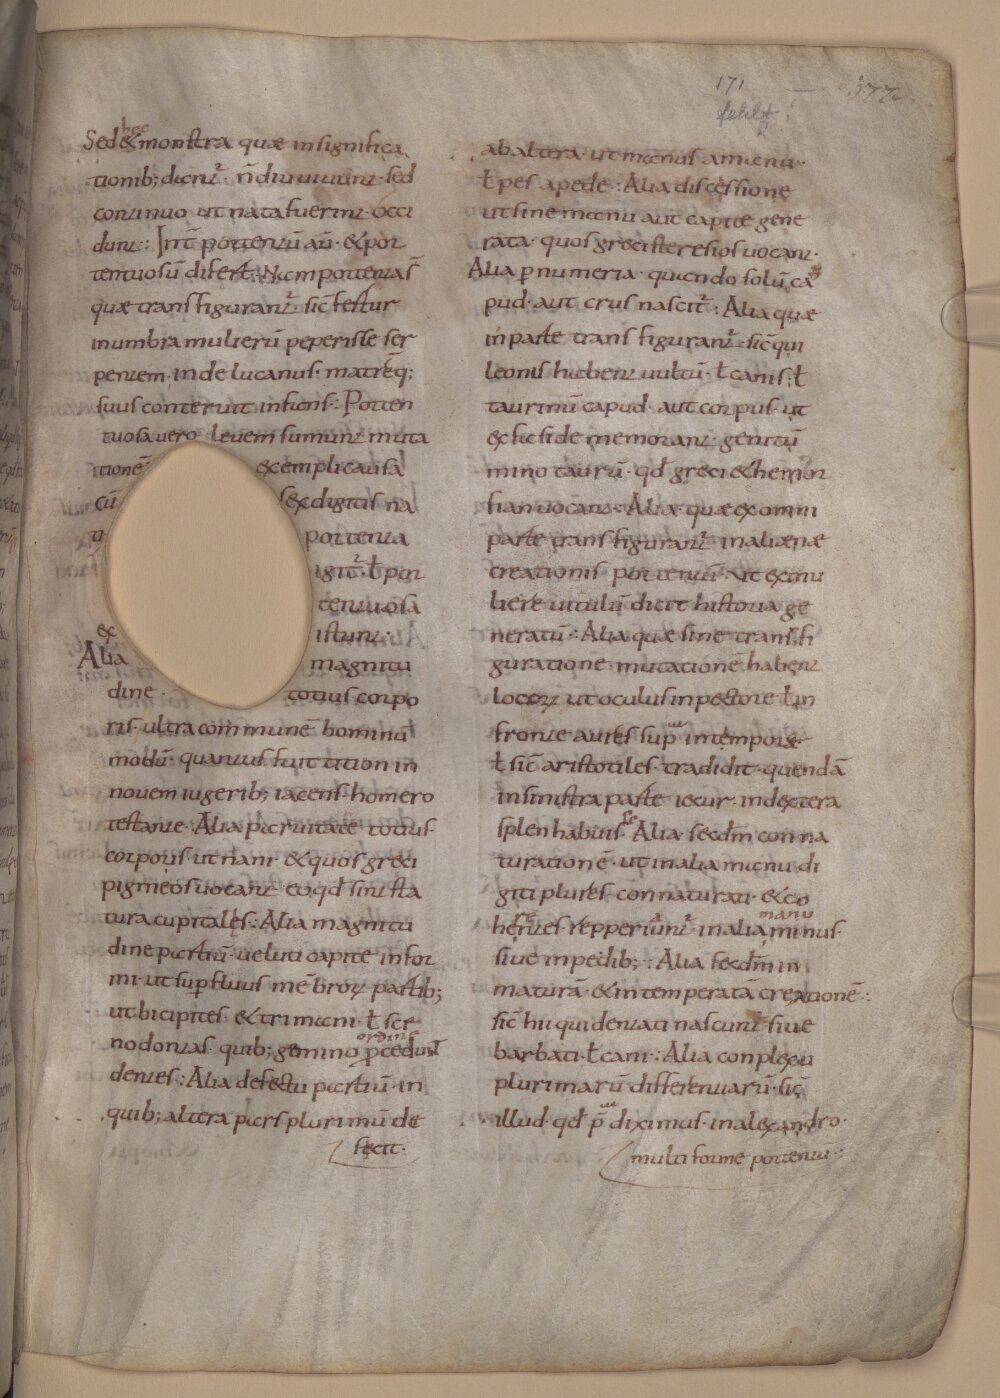 171
Sed & monstra quae insignifica
hec
tionib; dant᷑ n̄ diu uiuunt · sed
continuo ut nata fuerint · occi
dunt : Int̄ portentū aū · & por
tentuosū difert · Nam portentas̄
quae transfigurant᷑ · sic̄ fertur
inumbra mulierū peperisse ser
pentem · inde lucanus · matrēq;
suus conterruit infans : Porten
tuosa uero leuem sumunt muta
tionē exempli causa
cū sex digitis na
ti portenta
igit᷑ · ł por
tentuosa
ex istunt :
Alia magnitu
dine · totius corpo
ris · ultra commune hominū
modū · quantus fuit tition in
nouem iugerib; iacens · homero
testante · Alia paruitate totius ·
corporis ut nani · & quos greci
pigmeos uocant · eo qd̄ sint sta
tura cupitales : Alia magnitu
dine partiū · ueluti capite infor
mi · ut supfluus mēbroꝝ partib;
ut bicipites · & trimani · ł scr
nodontas · quib; gemino pcedunt
ordine
dentes : Alia defectu partiū · in
quib; altera pars plurimū de
fecit ·
ab altera · ut manus a manu ·
ł pes a pede : Alia discessione
ut sine manu aut capite gene
rata · quos greci steresios uocant ·
Alia pnumeria · quando solū ca
pud · aut crus nascit᷑ : Alia quae
in parte transfigurant᷑ · sic̄ qui
leonis habent uultū · ł canis · ł
taurinū capud · aut corpus · ut
ex faside memorant · genitū
mino taurū · qd̄ greci & hemor
fian uocant · Alia quae ex omni
parte transfigurant᷑ in alienae
creationis portentū · ut ex mu
liere uitulū dicit historia ge
neratū · Alia quae sine transfi
guratione mutationē habent
locoꝝ ut oculus in pectore ł in
fronte aures sup in tempora ·
ł sic̄ aristotiles · tradidit · quendā
in sinistra parte iecur · in dextera
splen habuisse Alia secdm̄ conna
turationē · ut in alia manu di
giti plures connaturati · & co
herentes repperiunt᷑ in alia minus ·
manu
siue in pedib; : Alia secdm̄ in
maturā · & intemperatā creationē :
sic̄ hii qui dentati nascunt᷑ siue
barbati · ł cani : Alia conplexu
plurimarū differentiarū · sic̄
illud · qd̄ p̄ diximus · in alexandro ·
multi forme portentū :